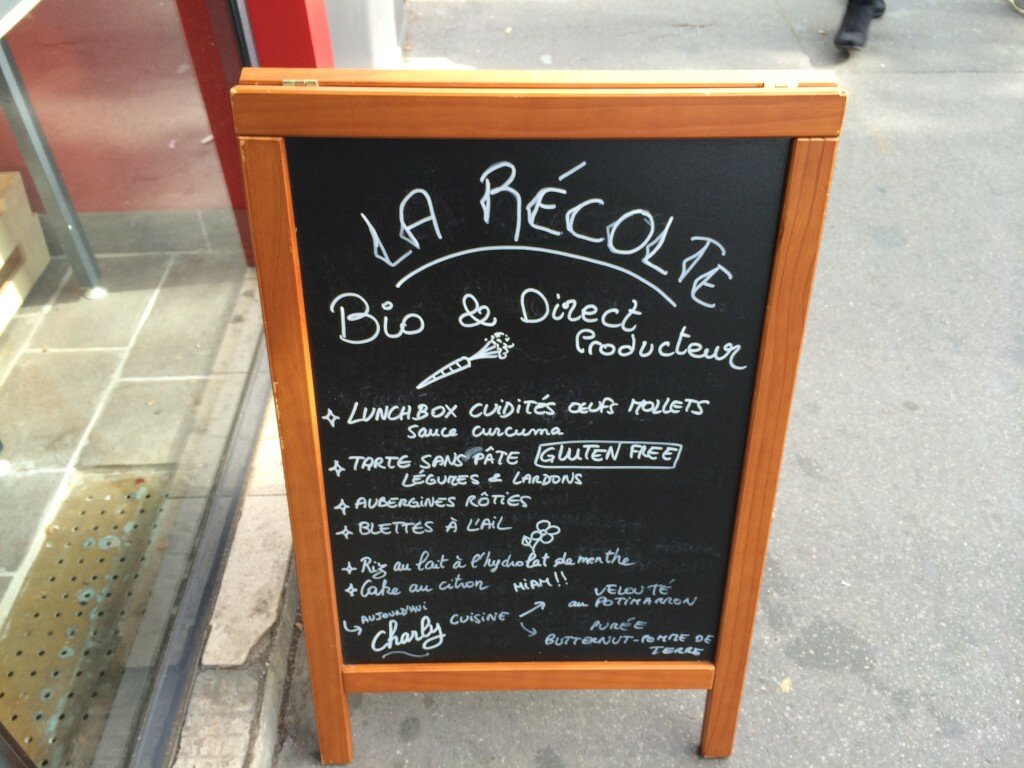 LA RÉCOLTE
Bio & Direct
Producteur
LUNCHBOX CUIDITÉS ŒUFS MOLLETS
Sauce curcuma
TARTE SANS PÂTE GLUTEN FREE
LÉGUMES & LARDONS
AUBERGINES RÔTIES
BLETTES À L'AIL
Riz au lait à l'hydrolat de menthe
Cake au citron MIAM!!
AUJOURD'HUI
Charly CUISINE
VELOUTÉ
au POTIMARRON
PURÉE
BUTTERNUT-POMME DE
TERRE